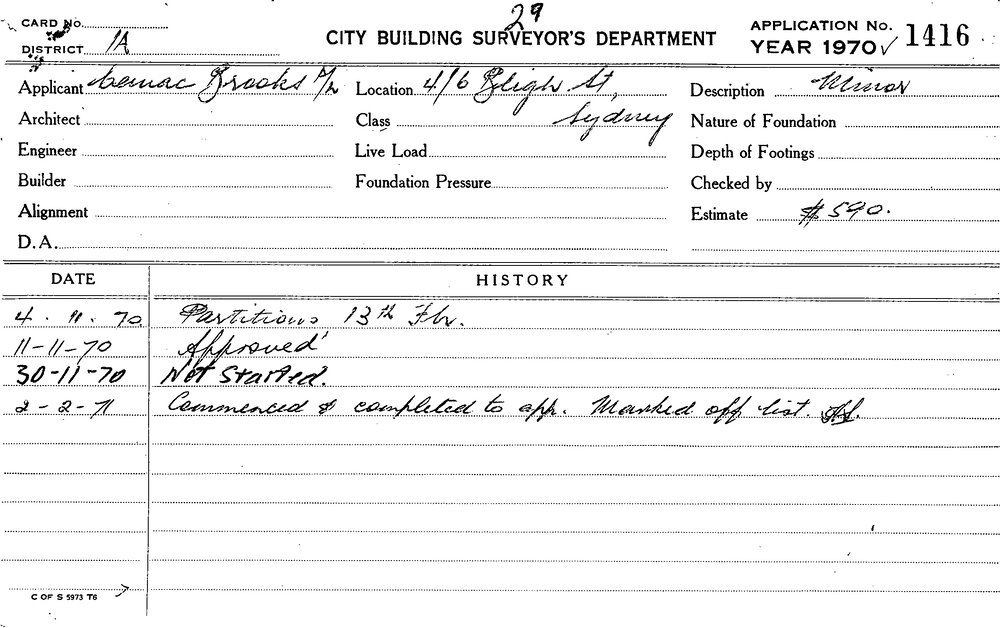 29
CARD No.
DISTRICT 1A
CITY BUILDING SURVEYOR'S DEPARTMENT
APPLICATION No.
YEAR 1970 ✓ 1416
Applicant Cemac Brooks P/L Location 4/6 Bligh St, Description Minor
Architect Class Sydney Nature of Foundation
Engineer Live Load Depth of Footings
Builder Foundation Pressure Checked by
Alignment Estimate $590.
D.A.
DATE HISTORY
4. 11. 70 Partitions 13th Flr.
11-11-70 Approved
30-11-70 Not Started.
2-2-71 Commenced & completed to app. Marked off list.
C OF S 5973 T6